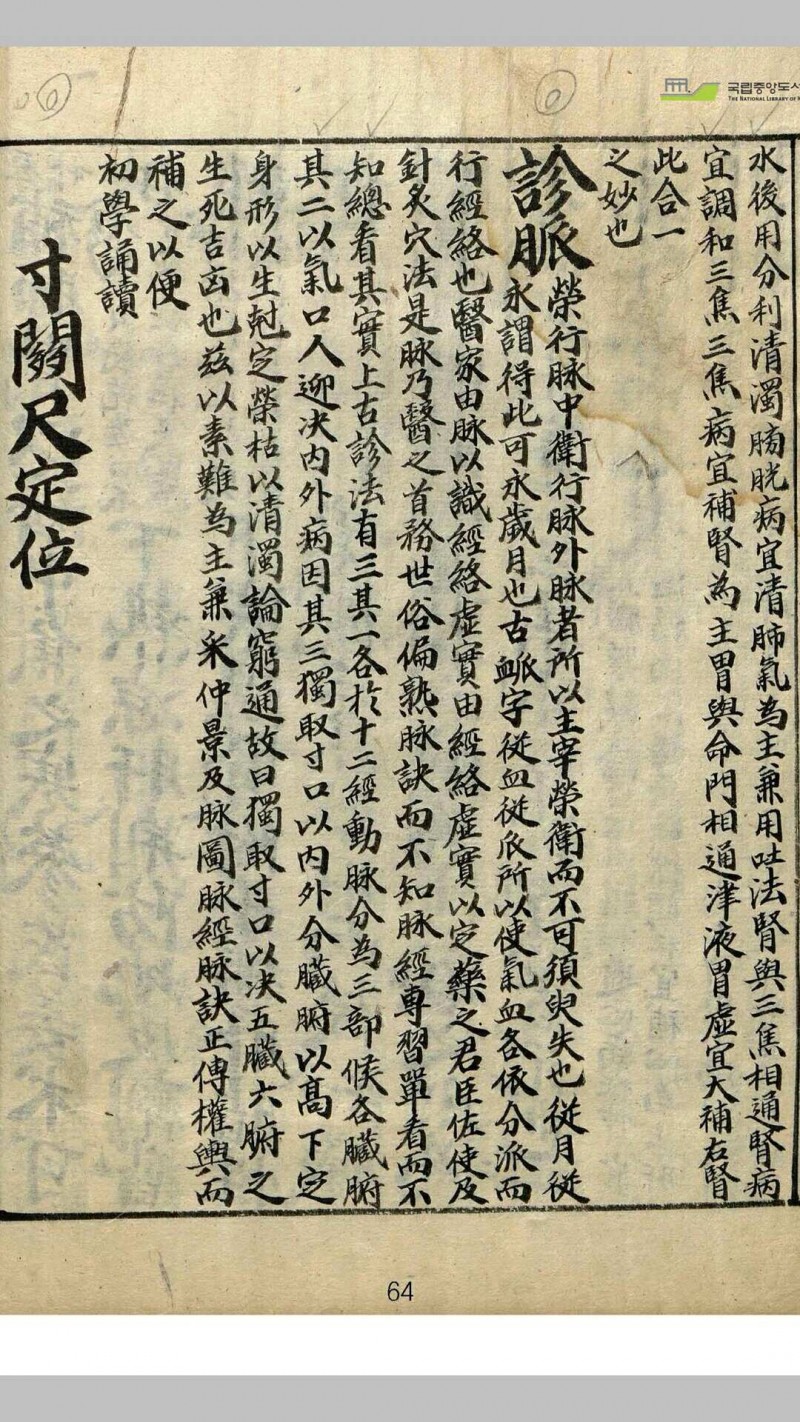 水後用分利清濁膀胱病宜清肺氣為主兼用吐法腎與三焦相通腎病
宜調和三焦三焦病宜補腎為主胃與命門相通津液胃虛宜大補右腎
此合一
之妙也
診脈
榮行脉中衛行脉外脉者所以主宰榮衛而不可須臾失也從月從
永謂得此可永歲月也古䘑字從血從𠂢所以使氣血各依分派而
行經絡也醫家由脉以識經絡虛實由經絡虛實以定藥之君臣佐使及
針灸穴法是脉乃醫之首務世俗偏熟脉訣而不知脉經專習單看而不
知總看其實上古診法有三其一各於十二經動脉分為三部候各臟腑
其二以氣口人迎决內外病因其三獨取寸口以內外分臟腑以高下定
身形以生尅定榮枯以清濁論窮通故曰獨取寸口以决五臟六腑之
生死吉凶也兹以素難為主兼采仲景及脉圖脉經脉訣正傳權輿而
補之以便
初學誦讀
寸關尺定位
국립중앙도서
THE NATIONAL LIBRARY OF
64